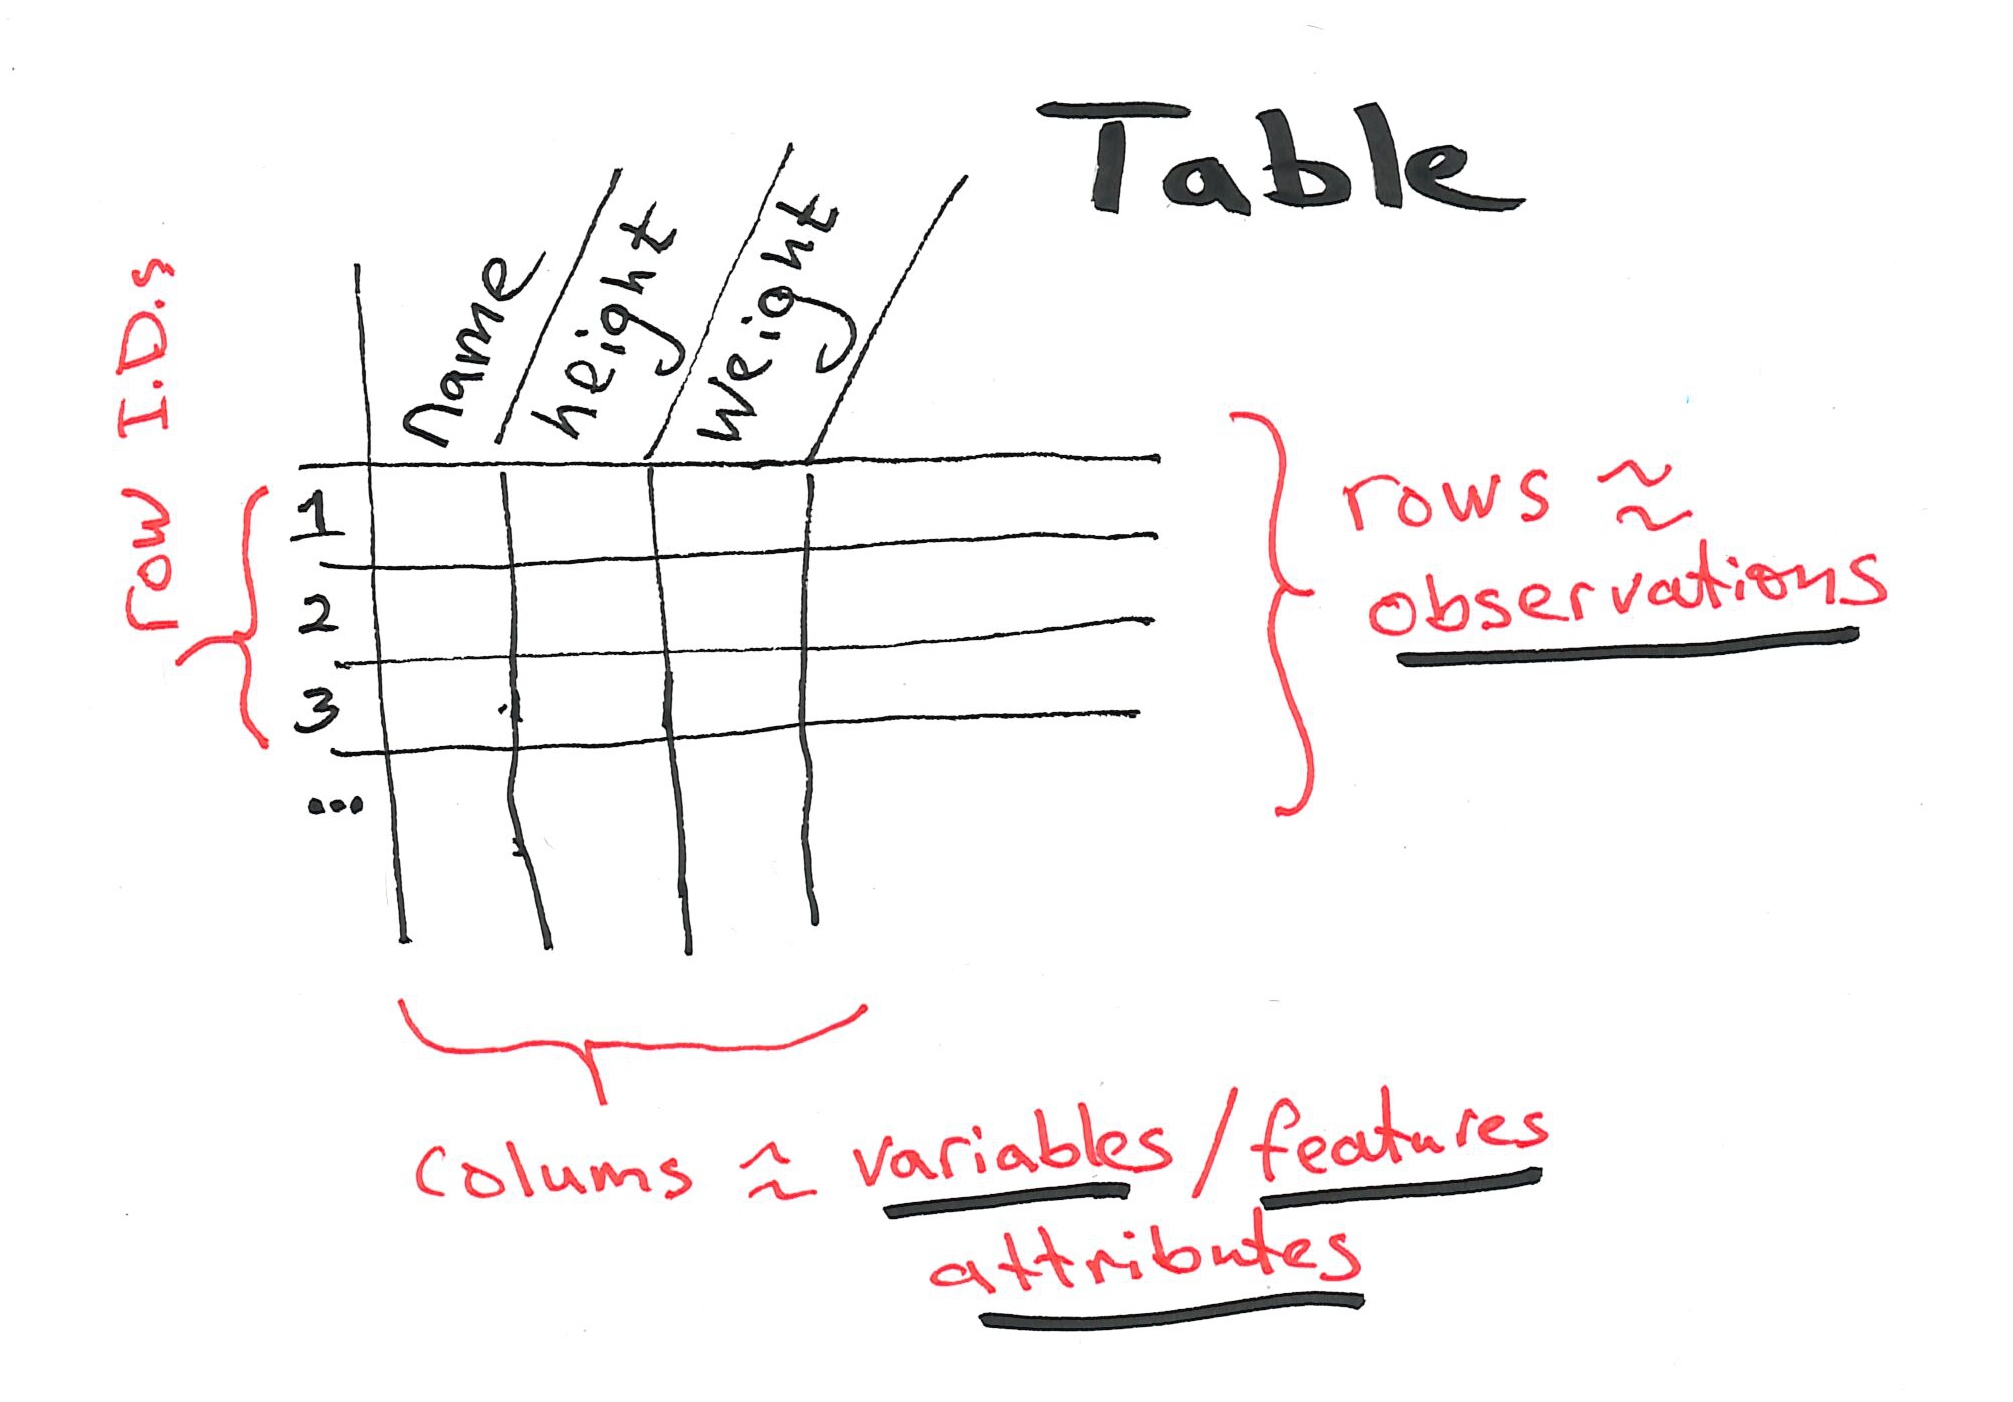 Table
name
height
Weight
row I.D.s
1
2
3
...
rows ≈
observations
colums ≈ variables / features
attributes